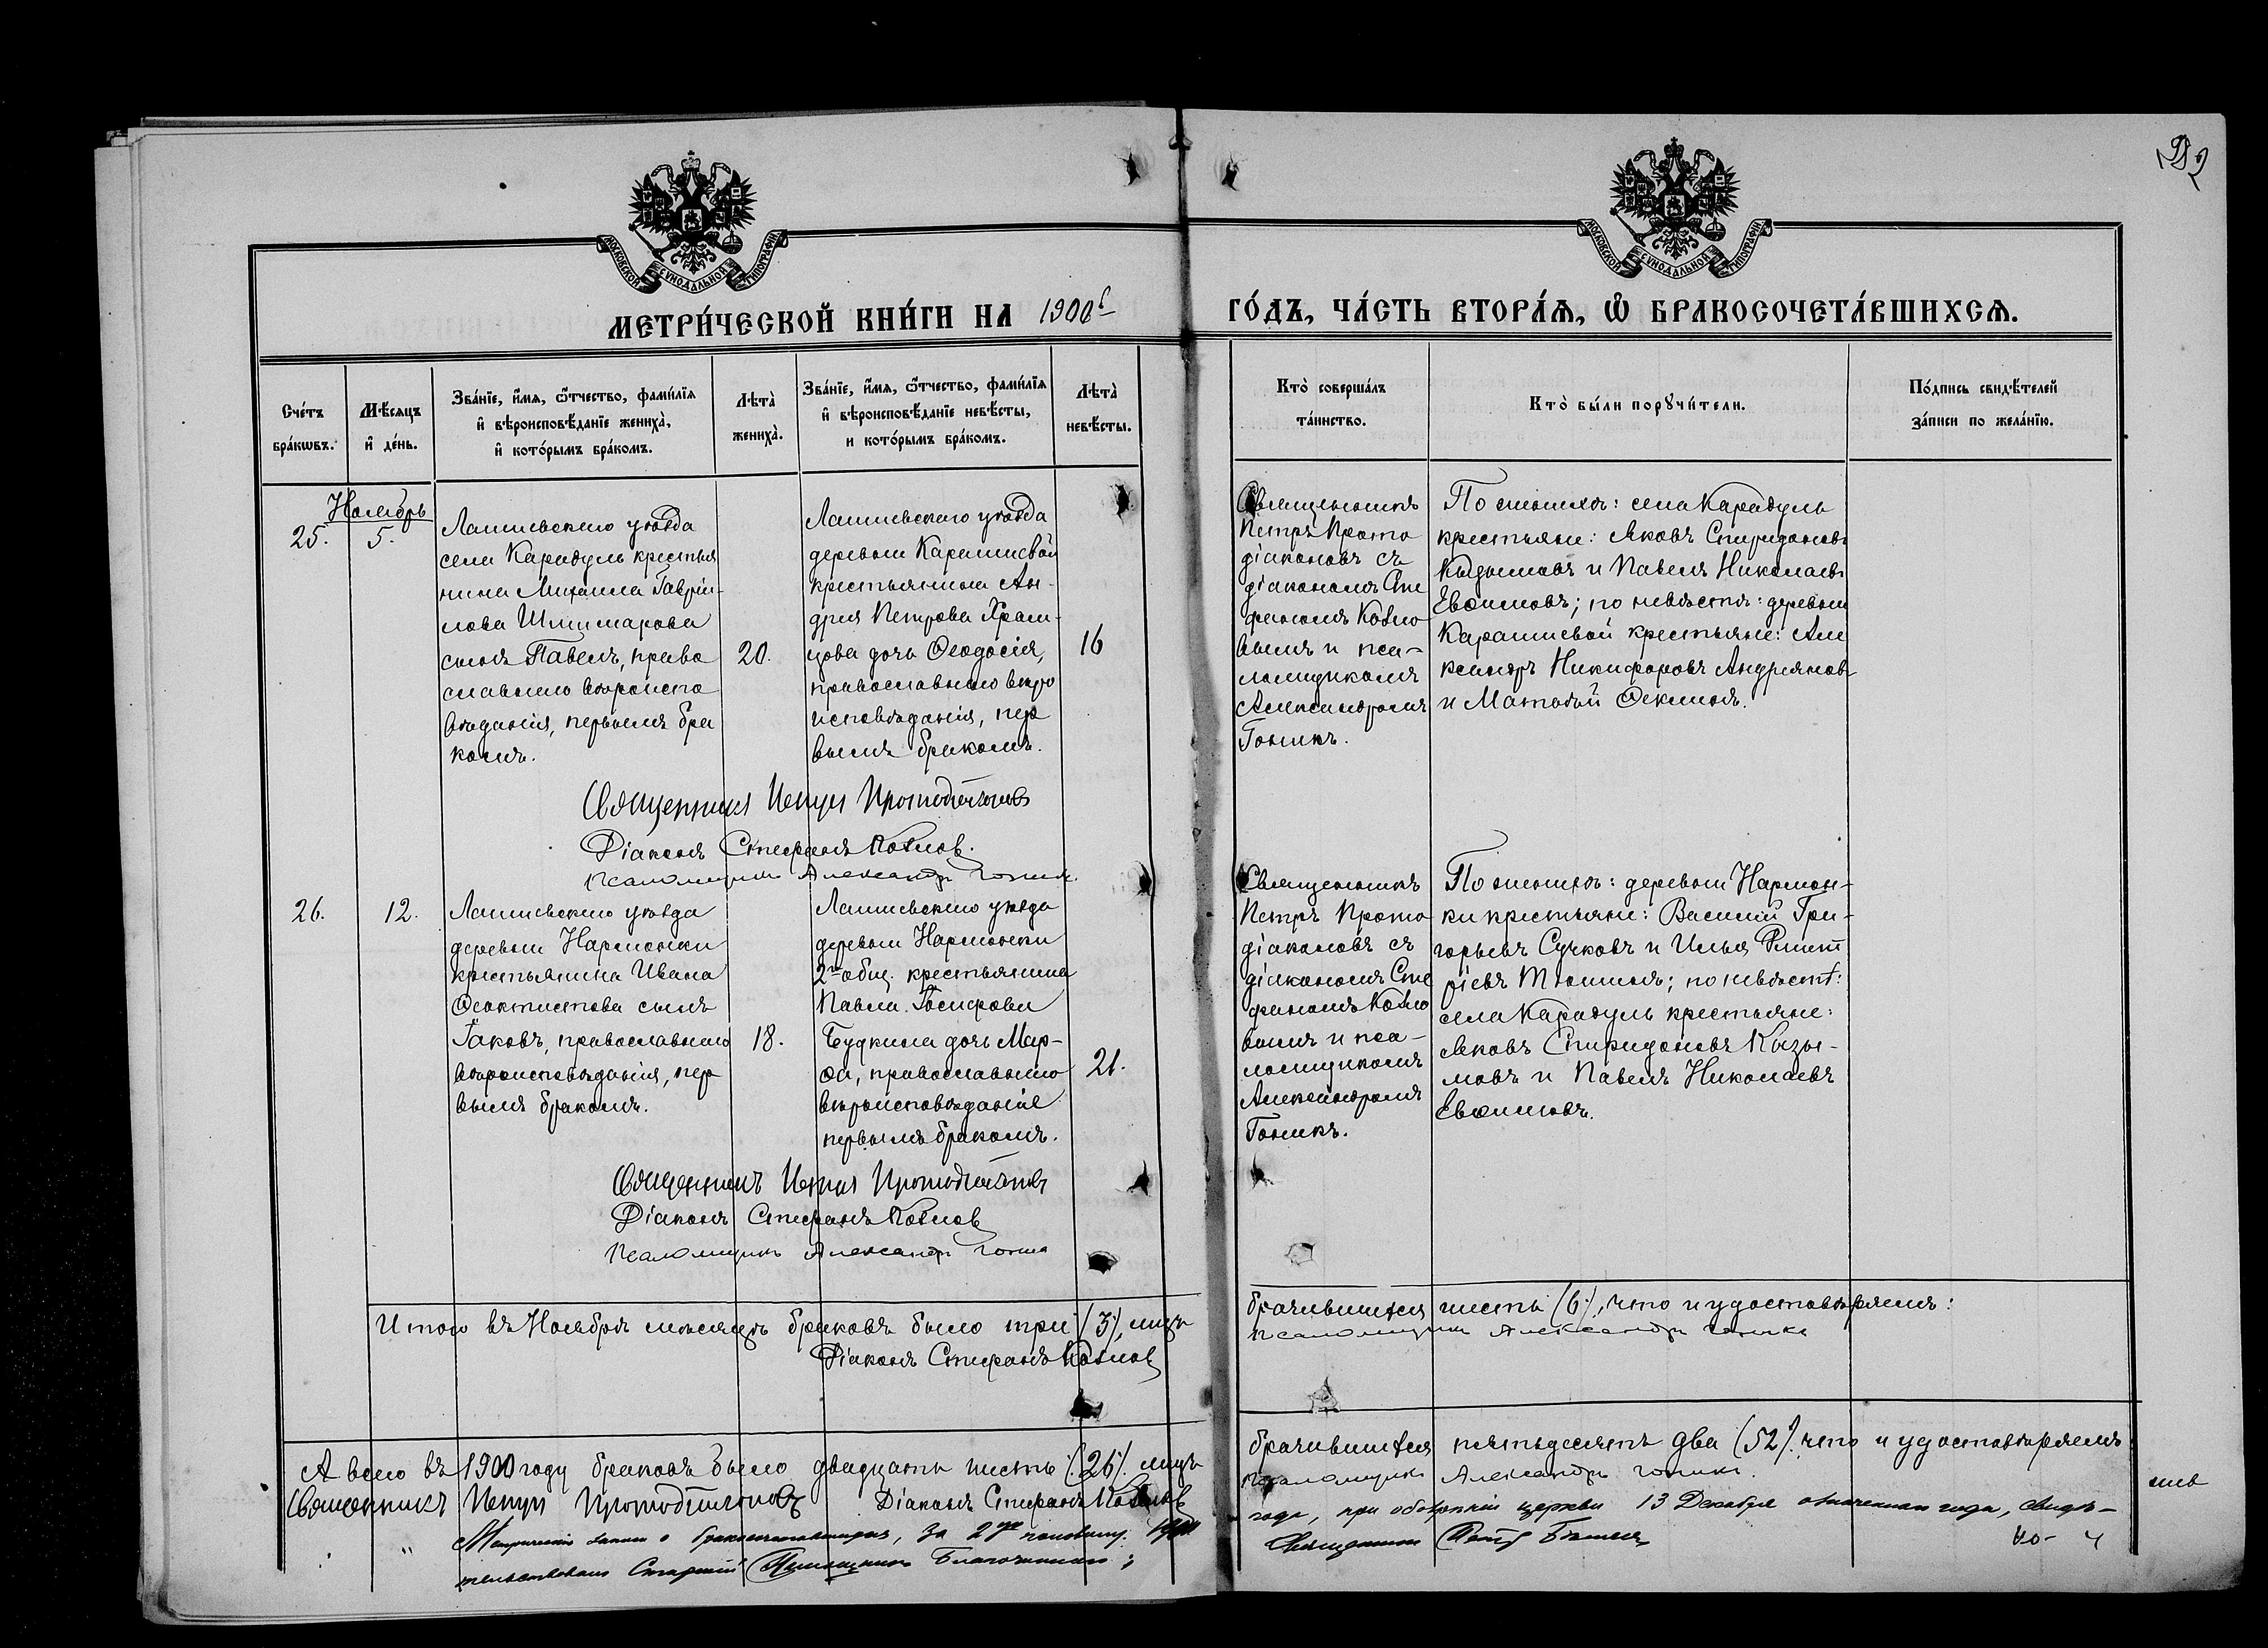 МЕТРИ́ЧЕСКОЙ КНИ́ГИ НА 1900й
ГО́ДЪ, ЧА́СТЬ ВТОРА́Ѧ, Ѡ҆ БРАКОСОЧЕТА́ВШИХСѦ.
МОСКОВСКОЙ СѴНОДАЛЬНОЙ ТИПОГРАФІИ
МОСКОВСКОЙ СѴНОДАЛЬНОЙ ТИПОГРАФІИ
Сче́тъ
бра́кѡвъ.
Мѣ́сѧцъ
и҆ де́нь.
Зва́нїе, и҆́мѧ, ѻ҆́тчество, фамѝлїѧ
и҆ вѣроисповѣ́данїе жениха̀,
и҆ кото́рымъ бра́комъ.
Лѣта̀
жениха̀.
Зва́нїе, и҆́мѧ, ѻ҆́тчество, фамѝлїѧ
и҆ вѣроисповѣ́данїе невѣ́сты,
и кото́рымъ бра́комъ.
Лѣта̀
невѣ́сты.
Кто̀ соверша́лъ
та́инство.
Кто̀ бы́ли порꙋчи́тели.
По́дпись свидѣ́телей
за́писи по жела́нїю.
Ноябрь
25.
5.
Лаишевскаго уѣзда
села Карадуль крестья
нина Михаила Гаврiи-
лова
сынъ Павелъ, право
славнаго вѣроиспо
вѣданiя, первымъ бра
комъ.
20.
Лаишевскаго уѣзда
деревни Карашиевой
крестьянина Ан-
дрея Петрова Храм-
цова дочь Ѳеодосiя,
православнаго вѣро
исповѣданiя, пер
вымъ бракомъ.
16
Священникъ
Петръ Прото
дiаконовъ съ
дiакономъ Сте
фаномъ Козло
вымъ и пса-
ломщикомъ
Александромъ
Гоникъ.
По женихѣ: села Карадуль
крестьяне: Яковъ Спиридоновъ
и Павелъ Николаевъ
Евѳимовъ; по невѣстѣ: деревни
Карашиевой крестьяне: Але
ксандръ Никифоровъ Андреяновъ
и Матвѣй Ѳекминъ.
Священникъ Петръ Протодiаконовъ
Дiаконъ Стефанъ Козлов.
Псаломщикъ Александръ Гоник.
26.
12.
Лаишевскаго уѣзда
деревни Нармонки
крестьянина Ивана
Ѳеоктистова сынъ
Iаковъ, православнаго
вѣроисповѣданiя, пер
вымъ бракомъ.
18.
Лаишевскаго уѣзда
деревни Нармонки
2го общ. крестьянина
Павла Iосифова
Будкина дочь Мар-
ѳа, православнаго
вѣроисповѣданiе
первымъ бракомъ.
21.
Священникъ
Петръ Прото
дiаконовъ съ
дiакономъ Сте
фаномъ Козло
вымъ и пса-
ломщикомъ
Александромъ
Гоникъ.
По женихѣ: деревни Нармон-
ки крестьяне: Василiй Гри-
горьевъ Сучковъ и Илья Дмит
рiевъ Тюминъ; по невѣстѣ:
села Карадуль крестьяне:
Яковъ Спиридоновъ Кызы-
мовъ и Павелъ Николаевъ
Евѳимовъ.
Священникъ Петръ Протодiаконовъ
Дiаконъ Стефанъ Козлов
Псаломщикъ Александръ Гоник
Итого въ Ноябрѣ мѣсяцѣ браковъ было три (3), лицъ
брачившихся шесть (6), что и удостовѣряемъ:
Дiаконъ Стефанъ Козлов
Псаломщикъ Александръ Гоникъ
А всего въ 1900 году браковъ было двадцать шесть (26). лицъ
брачившихся пятьдесятъ два (52). что и удостовѣряемъ
Священникъ Петръ Протодiаконовъ Дiаконъ Стефанъ Козлов
Псаломщикъ Александръ Гоникъ.
Метрическiя записи о бракосочетавшихся, за 2ую половину 1900
года, при обозрѣнiи церкви 13 Декабря означеннаго года, свидѣ-
тельствовалъ Старшiй Помощникъ Благочиннаго,
Священникъ Петръ